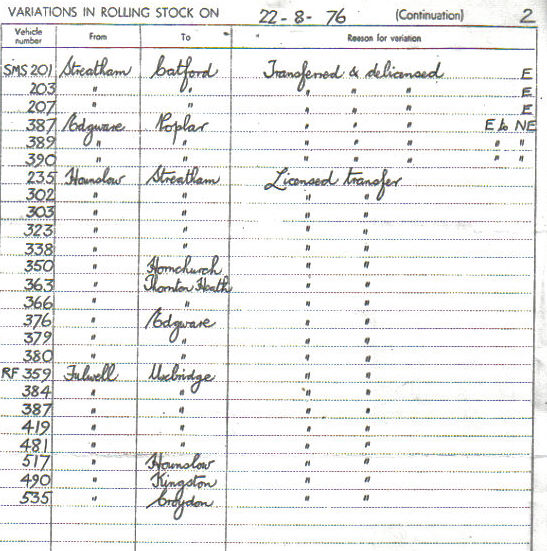 VARIATIONS IN ROLLING STOCK ON 22-8-76 (Continuation) 2
Vehicle number From To Reason for variation
SMS 201 Streatham Catford Transferred & delicensed E
203 " " " " " E
207 " " " " " E
387 Edgware Poplar " " " E to NE
389 " " " " " " "
390 " " " " " " "
235 Hounslow Streatham Licensed transfer
302 " " " "
303 " " " "
323 " " " "
338 " " " "
350 " Hornchurch " "
363 " Thornton Heath " "
366 " " " "
376 " Edgware " "
379 " " " "
380 " " " "
RF 359 Fulwell Uxbridge " "
384 " " " "
387 " " " "
419 " " " "
481 " " " "
517 " Hounslow " "
490 " Kingston " "
535 " Croydon " "